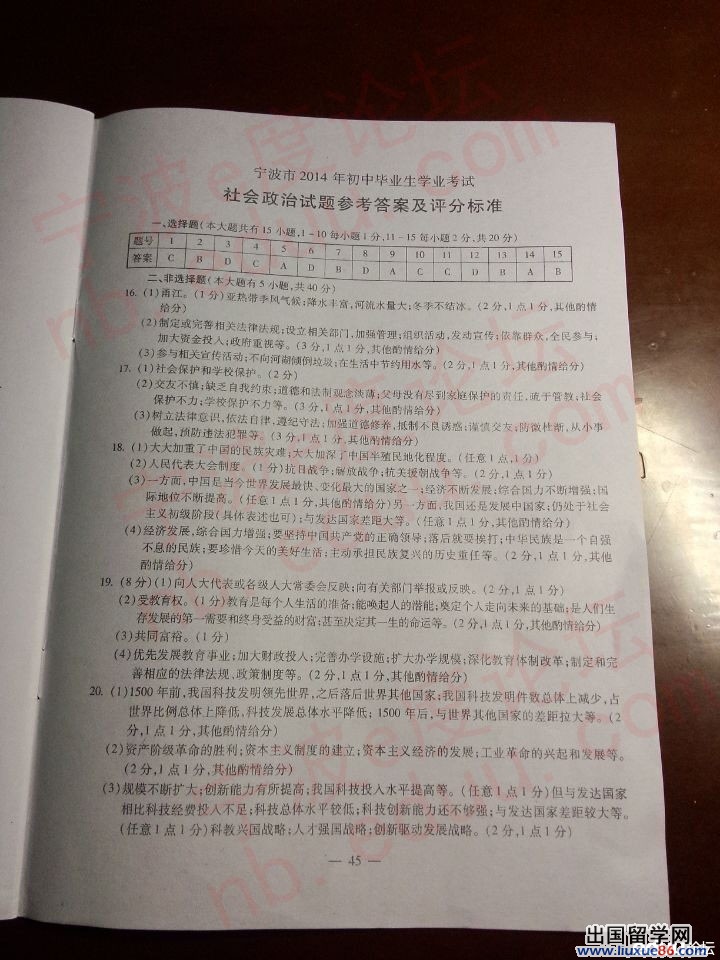 宁波市 2014 年初中毕业生学业考试
社会政治试题参考答案及评分标准
一、选择题(本大题共有 15 小题,1-10 每小题 1 分,11-15 每小题 2 分,共 20 分)
题号 1 2 3 4 5 6 7 8 9 10 11 12 13 14 15
答案 C B D C A D B D A C C D B A B
二、非选择题(本大题有 5 小题,共 40 分)
16. (1)甬江。(1 分)亚热带季风气候;降水丰富,河流水量大;冬季不结冰。(2 分,1 点 1 分,其他酌情
给分)
(2)制定或完善相关法律法规;设立相关部门,加强管理;组织活动,发动宣传;依靠群众,全民参与;
加大资金投入;政府重视等。(3 分,1 点 1 分,其他酌情给分)
(3)参与相关宣传活动;不向河湖倾倒垃圾;在生活中节约用水等。(2 分,1 点 1 分,其他酌情给分)
17. (1)社会保护和学校保护。(2 分)
(2)交友不慎;缺乏自我约束;道德和法制观念淡薄;父母没有尽到家庭保护的责任,疏于管教;社会
保护不力;学校保护不力等。(3 分,1 点 1 分,其他酌情给分)
(3)树立法律意识,依法自律,遵纪守法;加强道德修养,抵制不良诱惑;谨慎交友;防微杜渐,从小事
做起,预防违法犯罪等。(3 分,1 点 1 分,其他酌情给分)
18. (1)大大加重了中国的民族灾难;大大加深了中国半殖民地化程度。(2 分,1 点 1 分)
(2)人民代表大会制度。(1 分)抗日战争;解放战争;抗美援朝战争等。(2 分,1 点 1 分)
(3)一方面,中国是当今世界发展最快、变化最大的国家之一;经济不断发展;综合国力不断增强;国
际地位不断提高。(任意 1 点 1 分,其他酌情给分)另一方面,我国还是发展中国家;仍处于社会
主义初级阶段(具体表述也可);与发达国家差距大等。(任意 1 点 1 分,其他酌情给分)
(4)经济发展,综合国力增强;要坚持中国共产党的正确领导;落后就要挨打;中华民族是一个自强
不息的民族;要珍惜今天的美好生活;主动承担民族复兴的历史重任等。(2 分,1 点 1 分,其他
酌情给分)
19. (8 分)(1)向人大代表或各级人大常委会反映;向有关部门举报或反映。(2 分,1 点 1 分)
(2)受教育权。(1 分)教育是每个人生活的准备;能唤起人的潜能;奠定个人走向未来的基础;是人们生
存发展的第一需要和终身受益的财富;甚至决定其一生的命运等。(2 分,1 点 1 分)
(3)共同富裕。(1 分)
(4)优先发展教育事业;加大财政投入;完善办学设施;扩大办学规模;深化教育体制改革;制定和完
善相应的法律法规、政策制度等。(2 分,1 点 1 分,其他酌情给分)
20. (1)1500 年前,我国科技发明领先世界,之后落后世界其他国家;我国科技发明件数总体上减少,占
世界比例总体上降低,科技发展总体水平降低;1500 年后,与世界其他国家的差距拉大等。(2
分,1 点 1 分,其他酌情给分)
(2)资产阶级革命的胜利;资本主义制度的建立;资本主义经济的发展;工业革命的兴起和发展等。
(2 分,1 点 1 分,其他酌情给分)
(3)规模不断扩大;创新能力有所提高;我国科技投入水平提高等。(任意 1 点 1 分)但与发达国家
相比科技经费投入不足;科技总体水平较低;科技创新能力还不够强;与发达国家差距较大等。
(任意 1 点 1 分)科教兴国战略;人才强国战略;创新驱动发展战略。(2 分,1 点 1 分)
— 45 —
宁波e度论坛
nb.eduu.com
出国留学网
www.liuxue86.com